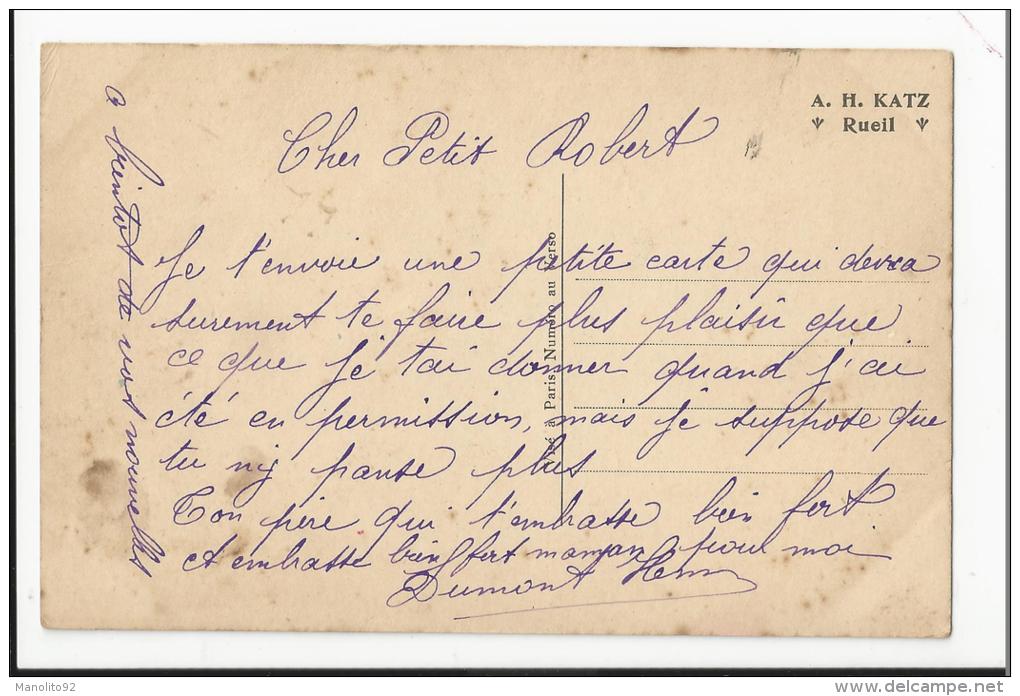 A. H. KATZ
Rueil
Cher Petit Robert
Je t'envoie une petite carte qui devra
surement te faire plus plaisir que
ce que je tai donner quand j'ai
été en permission, mais je suppose que
tu n'y panse plus
Ton père qui t'embrasse bien fort
et embrasse bien fort maman pour moi
Dumont Henri
a bientot de vos nouvelles
Visé à Paris. Numéro au verso
Manolito92
www.delcampe.net